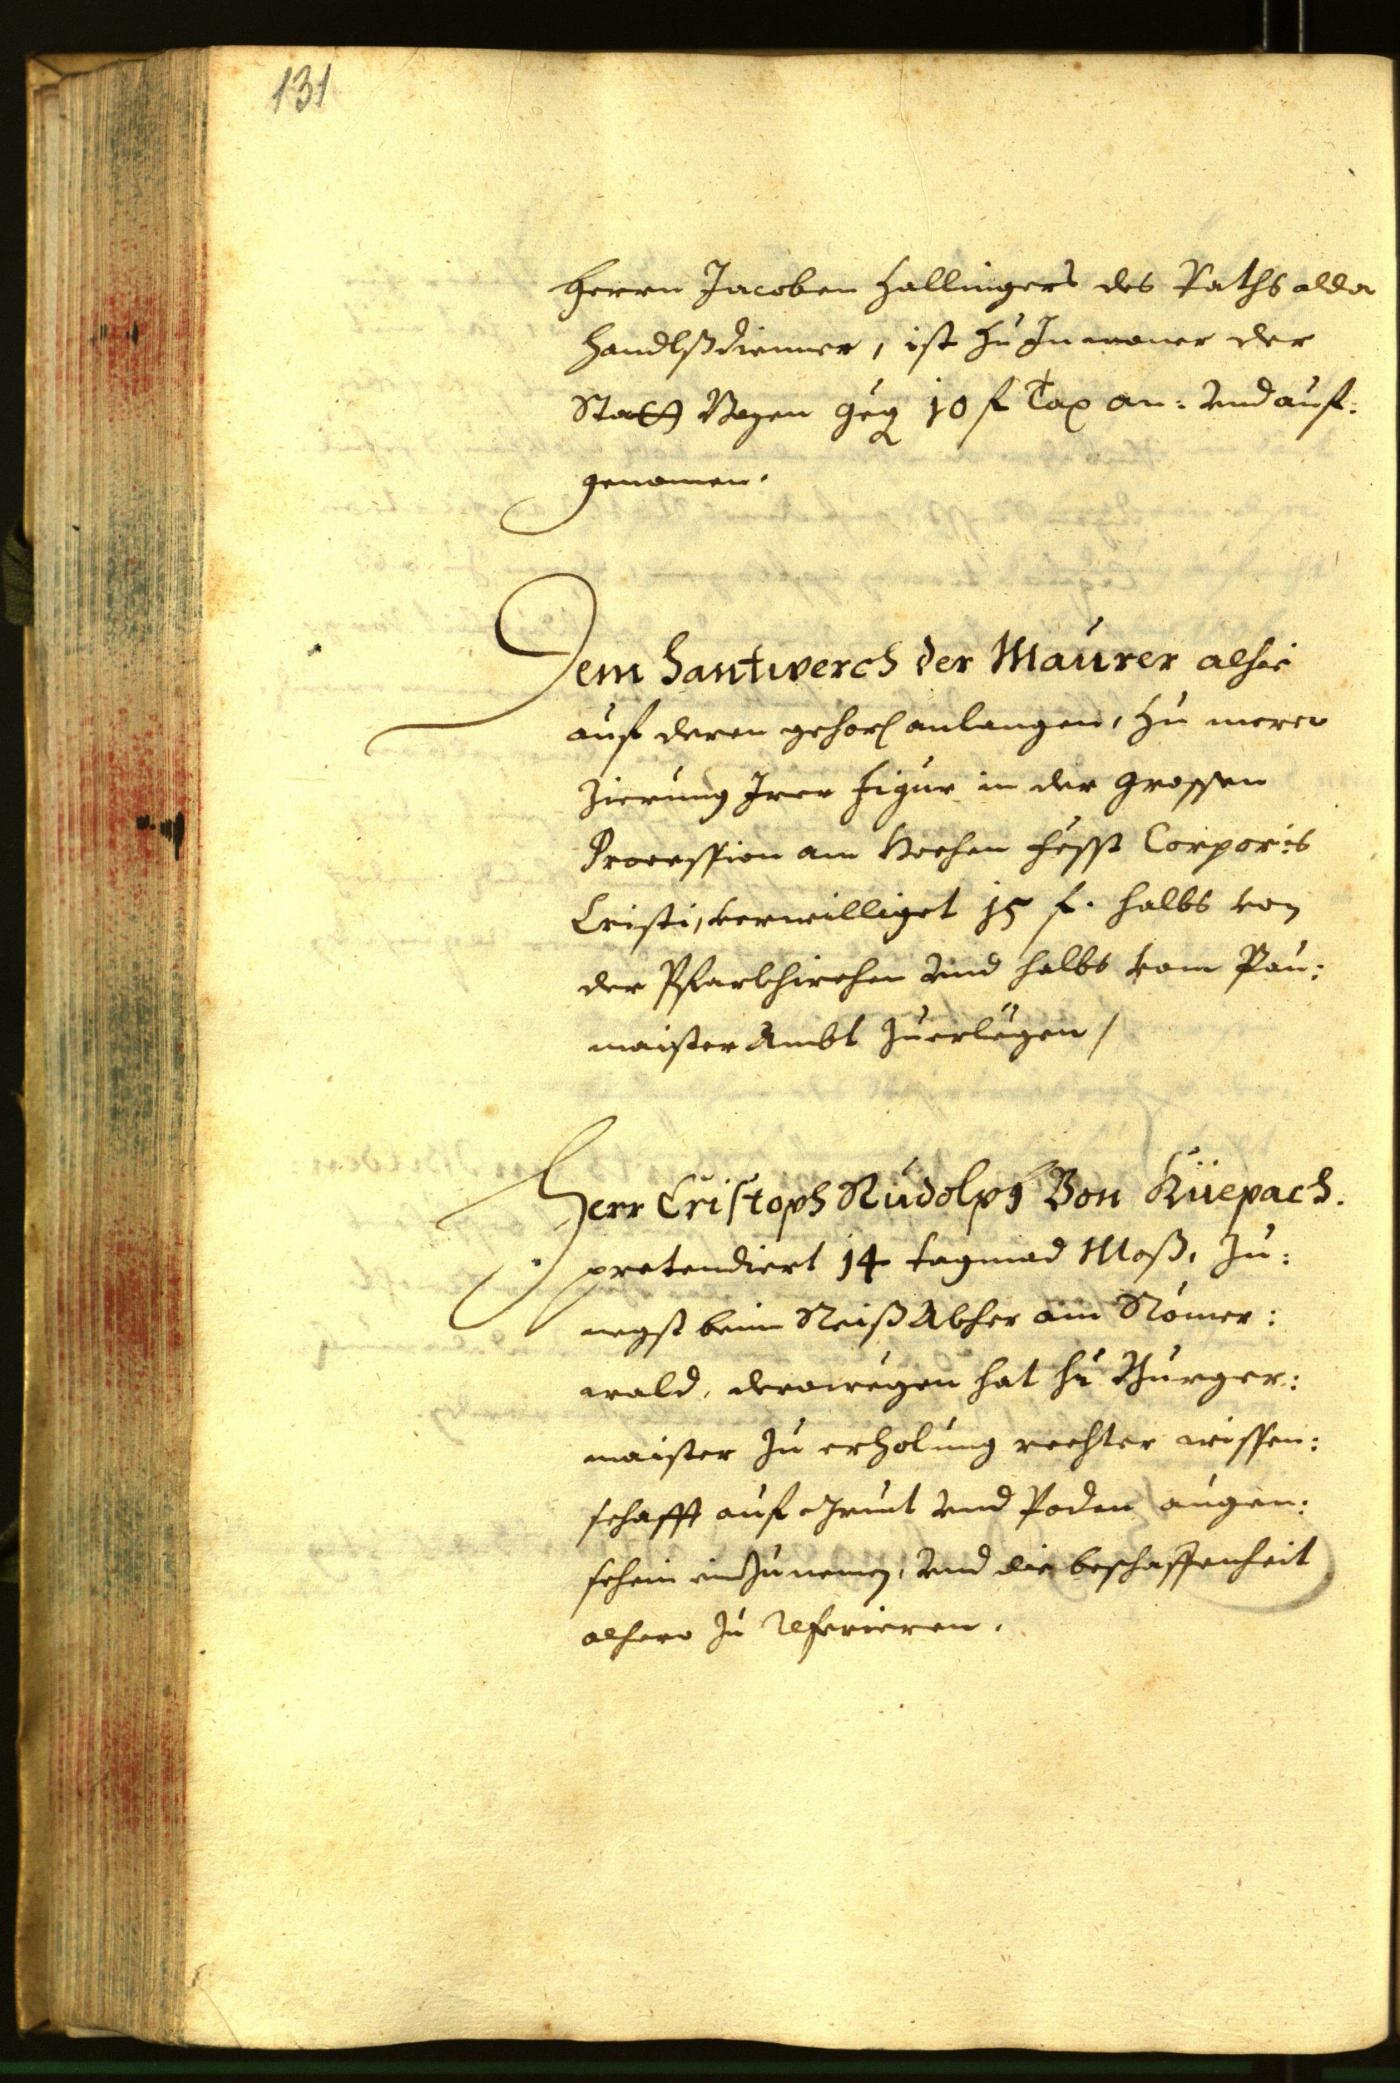 131
Herrn Jacoben Hallingers des Raths alda
Handlßdienner, ist zu Inwoner der
Statt Bozen geg 10 f Tax an: vnd auf:
genomen.
Dem Hantwerch der Maurer alhie
auf deren gehors anlangen, zu merer
Zierung Irer Figur in der grossen
Procession am Hochen Fesst Corporis
Cristi, verwilliget 15 f. halbs von
der Pfarkhirchen vnd halbs vom Pau:
maister Ambt zuerlegen /
Herr Cristoph Rudolph Von Küepach.
pretendiert 14 tagmad Moß, zu:
negst beim Reiß am Römer:
wald, derowegen hat h Burger:
maister zu erholung rechter wissen:
schafft auf Grunt vnd Poden augen:
schein einzunemen, vnd die beschaffenheit
alhero zu Referieren.